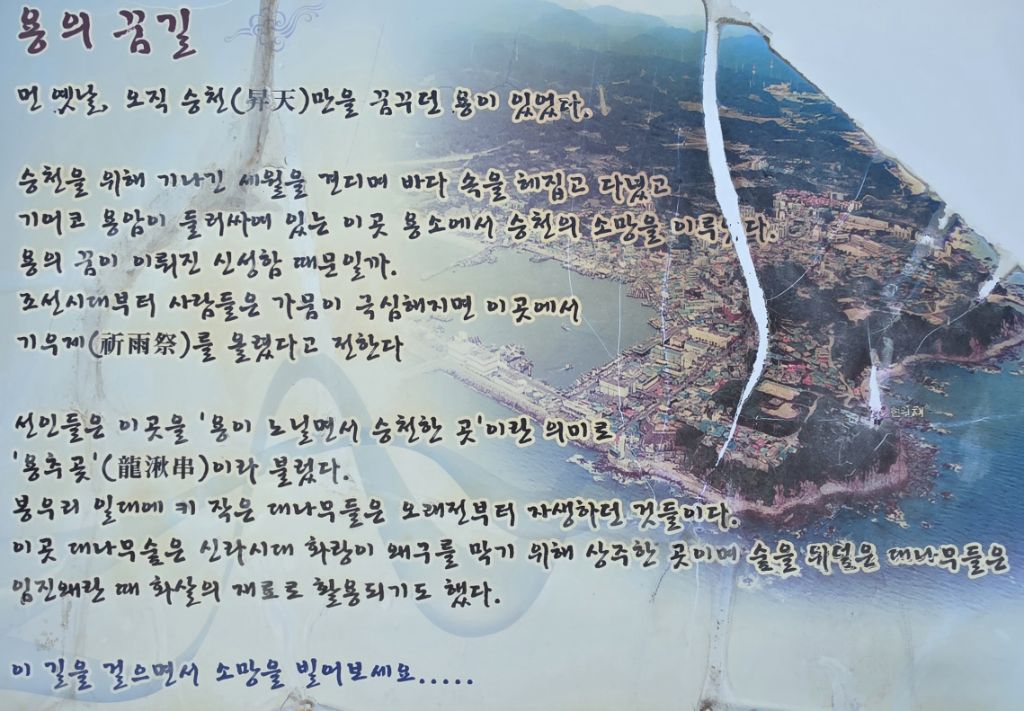 용의 꿈길
먼 옛날, 오직 승천(昇天)만을 꿈꾸던 용이 있었다.
승천을 위해 기나긴 세월을 견디며 바다 속을 헤집고 다녔고
기어코 용암이 둘러싸여 있는 이곳 용소에서 승천의 소망을 이루었다.
용의 꿈이 이뤄진 신성함 때문일까.
조선시대부터 사람들은 가뭄이 극심해지면 이곳에서
기우제(祈雨祭)를 올렸다고 전한다
선인들은 이곳을 '용이 노닐면서 승천한 곳'이란 의미로
'용추곶'(龍湫串)이라 불렀다.
봉우리 일대에 키 작은 대나무들은 오래전부터 자생하던 것들이다.
이곳 대나무숲은 신라시대 화랑이 왜구를 막기 위해 상주한 곳이며 숲을 뒤덮은 대나무들은
임진왜란 때 화살의 재료로 활용되기도 했다.
이 길을 걸으면서 소망을 빌어보세요.....